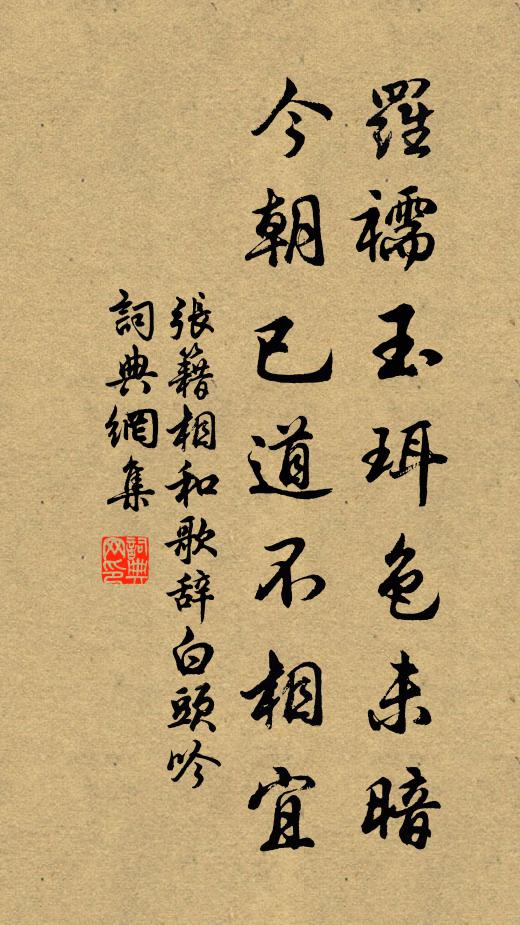 羅襦玉珥色未暗
今朝已道不相宜
張籍相和歌辞白頭吟
詞典網集
詞典
网印